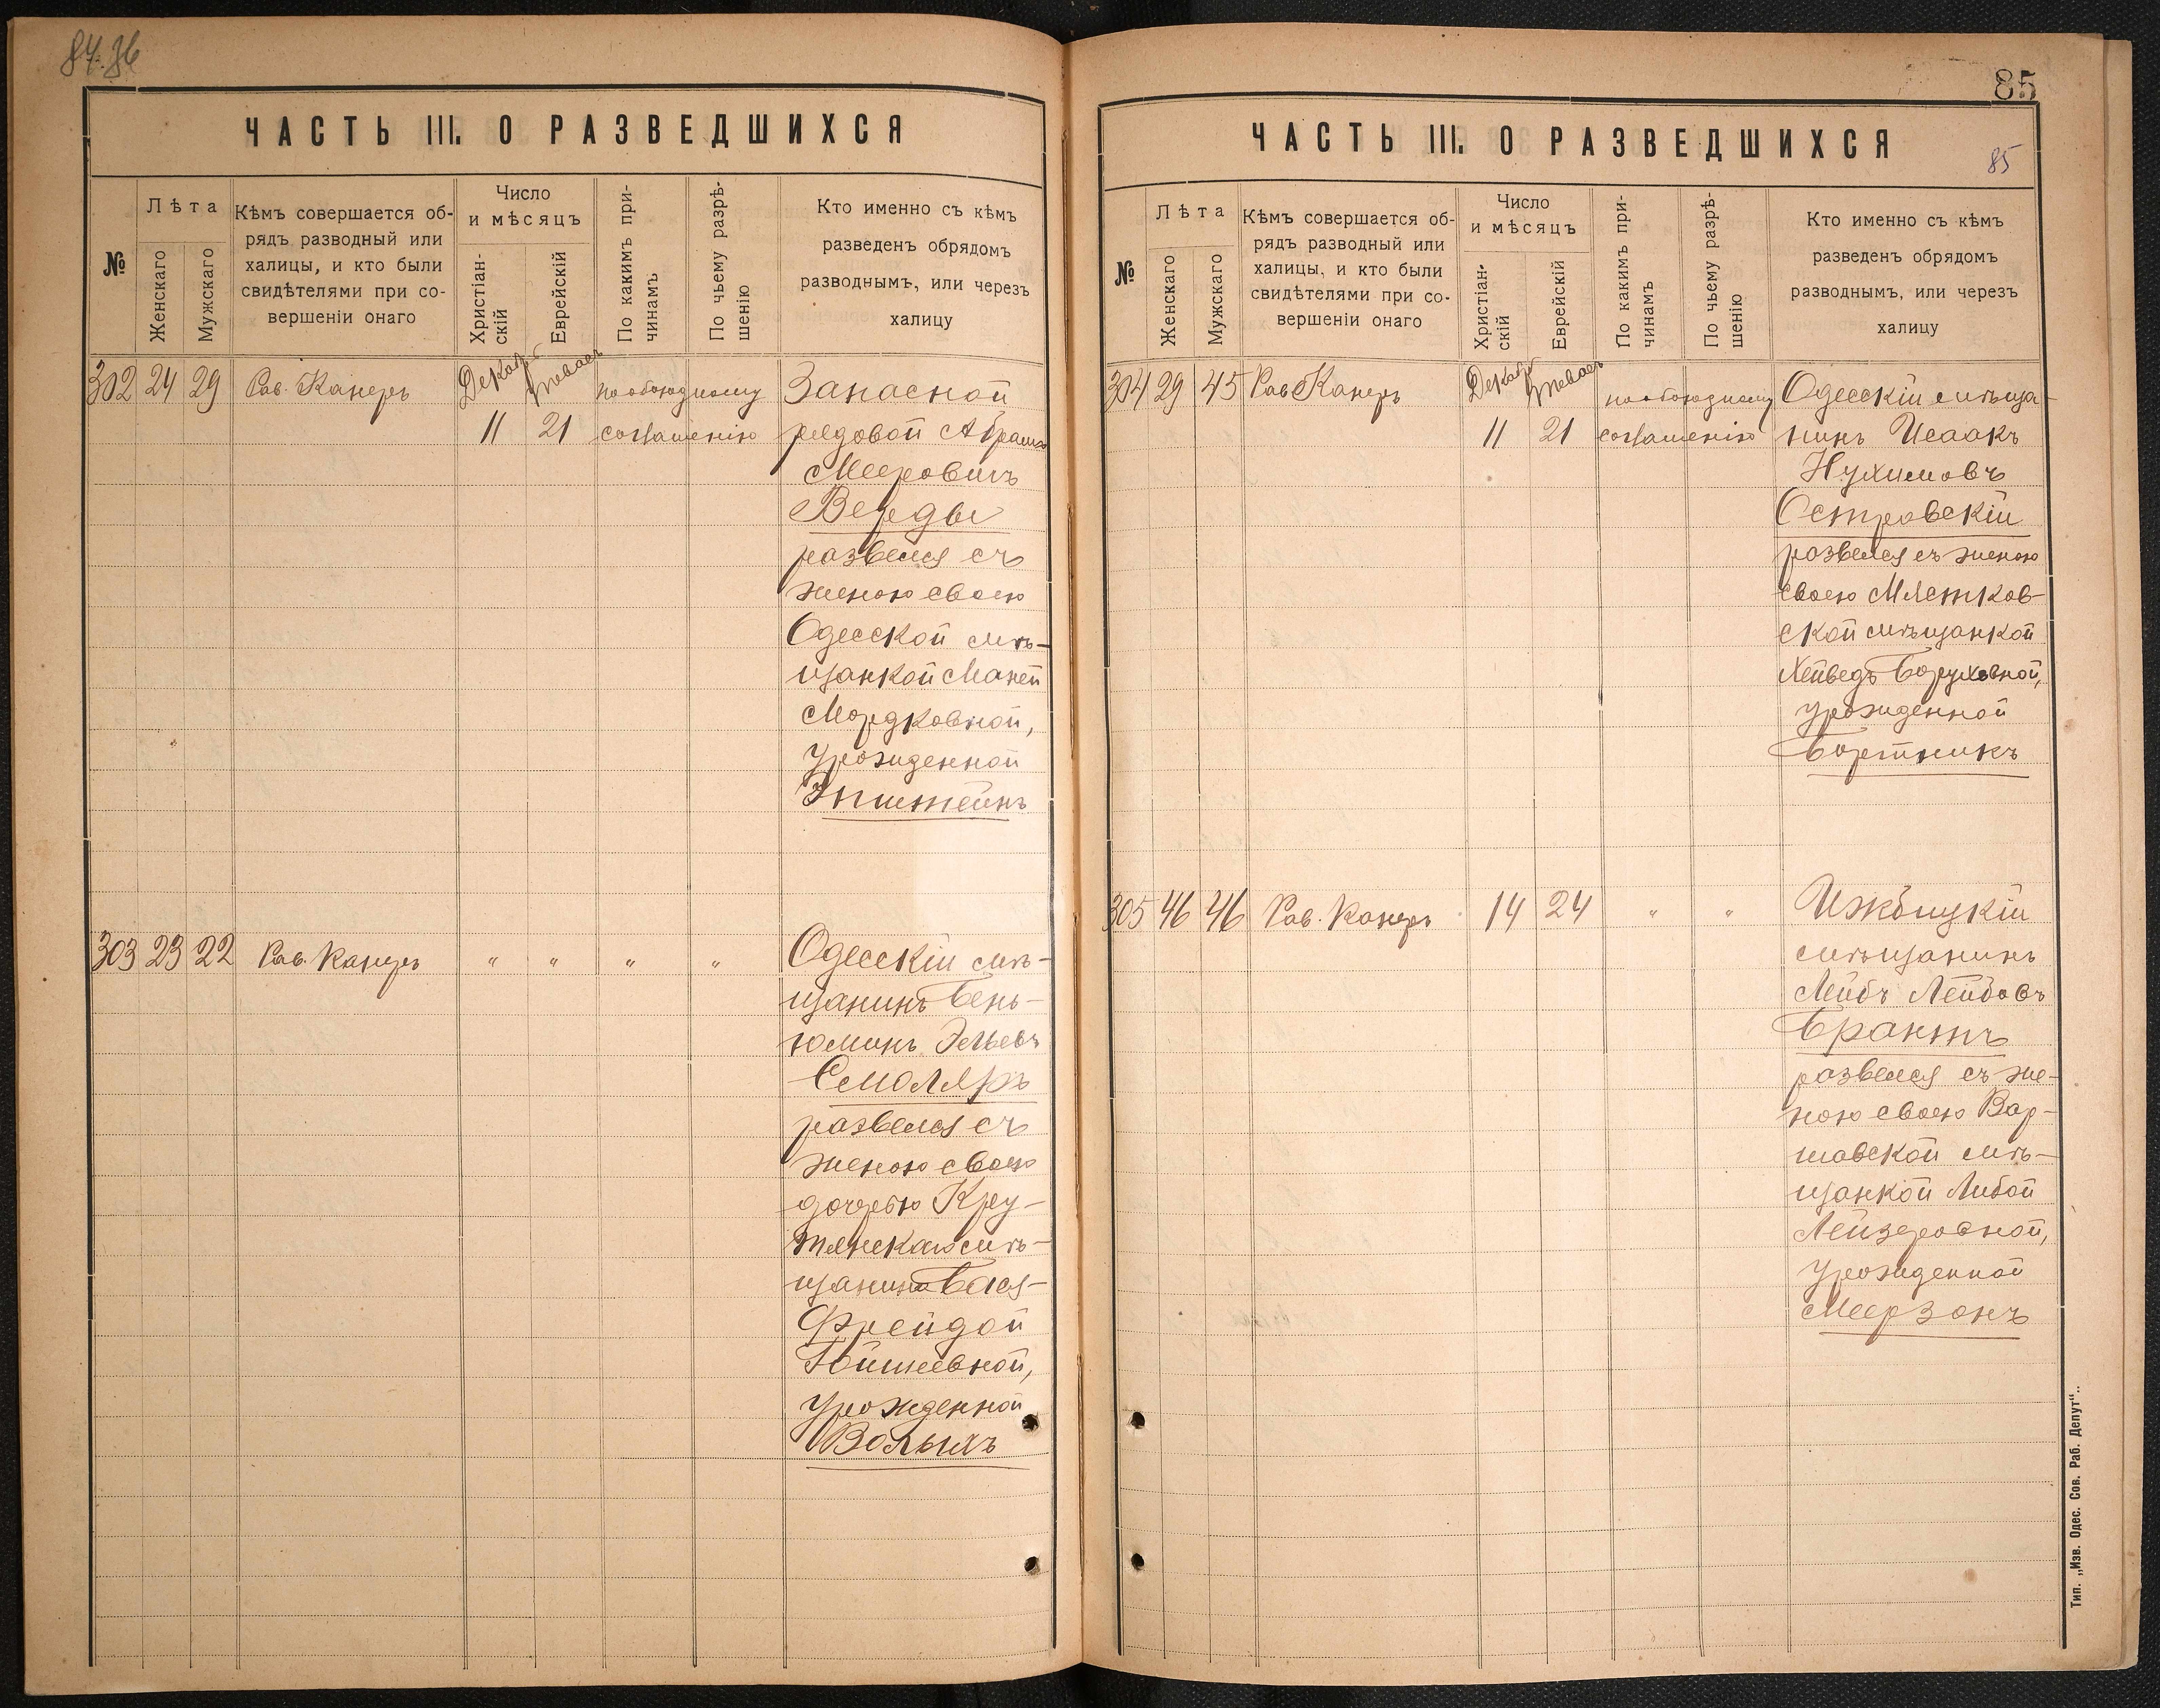 84.86
ЧАСТЬ III. О РАЗВЕДШИХСЯ
№
Лѣта
Женскаго
Мужскаго
Кѣмъ совершается об-
рядъ разводный или
халицы, и кто были
свидѣтелями при со-
вершеніи онаго
Число
и мѣсяцъ
Христіан-
скій
Еврейскій
По какимъ при-
чинамъ
По чьему разрѣ-
шенію
Кто именно съ кѣмъ
разведенъ обрядомъ
разводнымъ, или черезъ
халицу
302 24 29 Рав. Канеръ Декабр по обоюдному Запасной
11 21 соглашенію рядовой Абрамъ
Мееровичъ
Верды
развелся съ
женою своею
Одесской мѣ-
щанкой Маней
Мордковной,
урожденной
Эпштейнъ
303 23 22 Рав. Канеръ " " " " Одесскій мѣ-
щанинъ Бень-
юминъ Эльевъ
Смоляръ
развелся съ
женою своею
дочерью Кру-
тянскаго мѣ-
щанина Бася-
Фрейдой
Гойшиевной,
урожденной
Волыхъ
85
ЧАСТЬ III. О РАЗВЕДШИХСЯ
85
№
Лѣта
Женскаго
Мужскаго
Кѣмъ совершается об-
рядъ разводный или
халицы, и кто были
свидѣтелями при со-
вершеніи онаго
Число
и мѣсяцъ
Христіан-
скій
Еврейскій
По какимъ при-
чинамъ
По чьему разрѣ-
шенію
Кто именно съ кѣмъ
разведенъ обрядомъ
разводнымъ, или черезъ
халицу
304 29 45 Рав Канеръ Декабр по обоюдному Одесскій мѣща-
11 21 соглашенію нинъ Исаакъ
Нухимовъ
Островскій
развелся съ женою
своею Млетков-
ской мѣщанкой
Хейведъ Боруховной,
урожденной
Бортникъ
305 46 46 Рав. Канеръ 14 24 " " Ижбицкій
мѣщанинъ
Лейбъ Лейбовъ
Брантъ
развелся съ же-
ною своею Вар-
шавской мѣ-
щанкой Либой
Лейзеровной,
урожденной
Меерзонъ
Тип. „Изв. Одес. Сов. Раб. Депут“..